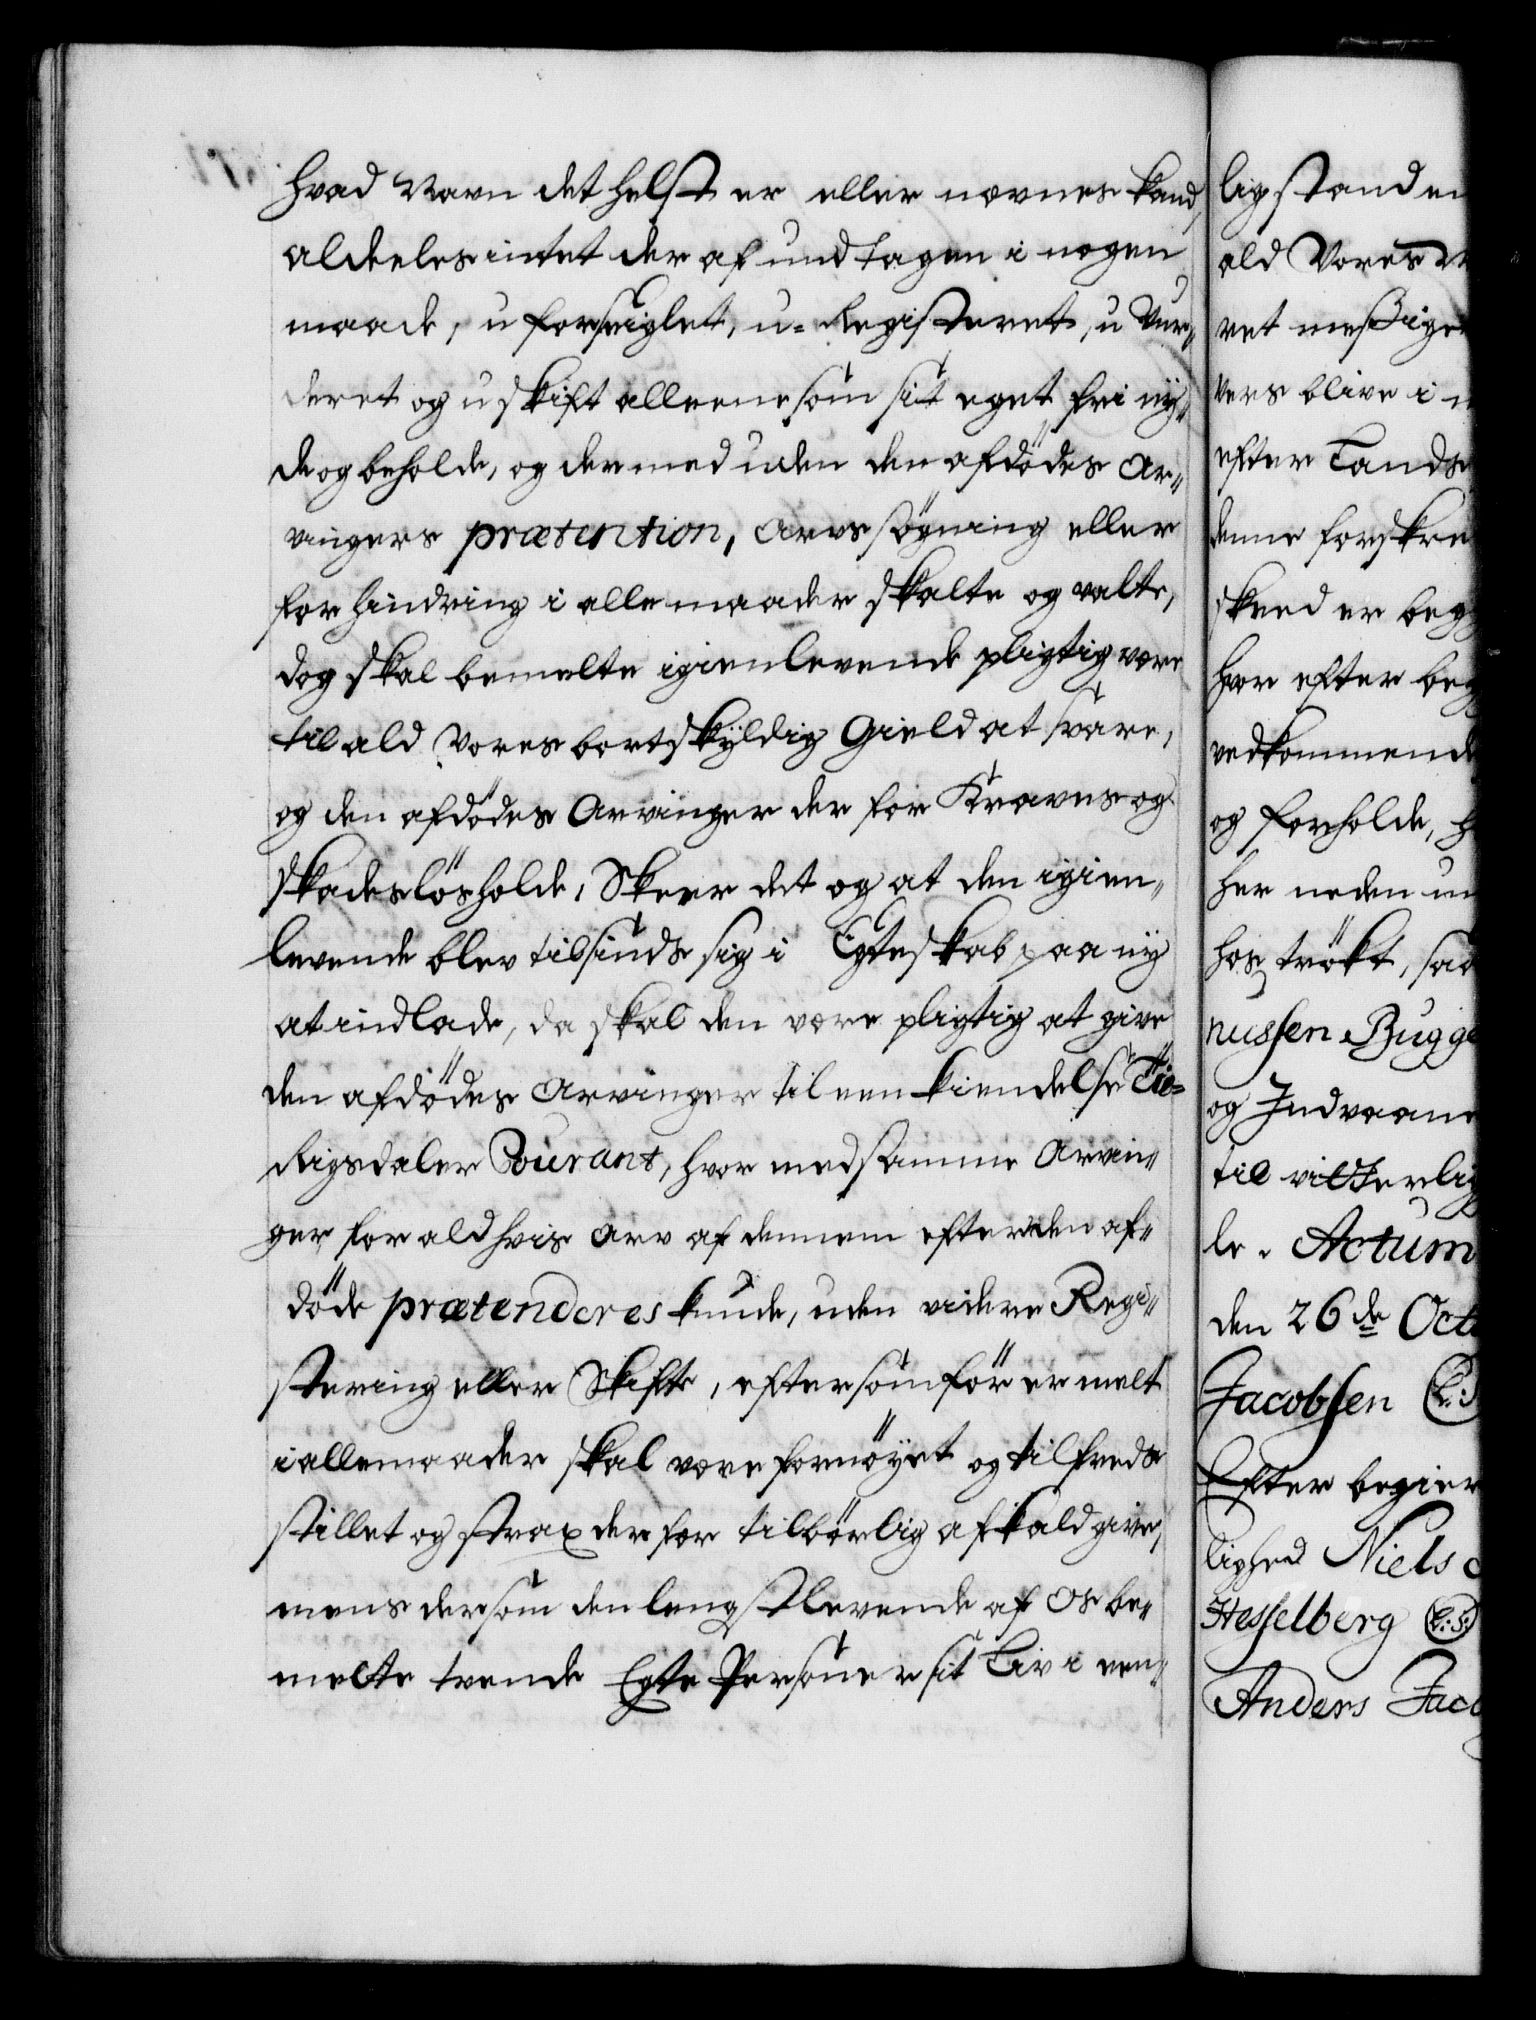 hvad Navn det helst er eller nævnes kand,
aldeeles intet der af undtagen i nogen
maade, u forseiglet, u-Registeret, u Vur„
deret og u skift alleene som sit eget frii ny„
de og beholde, og der med uden den afdödes Ar„
vingers prætention, Arvs søgning eller
for hindring i alle maader skalte og valte,
dog skal bemelte igienlevende pligtig være
til ald Vores bortskyldig Gield at svare,
og den afdödes Arvinger der for Kraves og
skadeslösholde, Skeer det og at den igien„
levende blev tilsinds sig i Egteskab paa ny
at indlade, da skal den være pligtig at give
den afdödes Arvinger til een kiendelse Tie-
Rigsdaler Courant, hvor med samme Arvin„
ger for ald hvis Arv af dennem efter den af„
döde prætenderes kunde, uden videre Regi„
stering eller Skifte, eftersom för er melt
i alle maader skal være fornöyet og tilfreds
stillet og strax der for tilbörlig afkald give,
mens dersom den lengstlevende af Os be„
melte tvende Egte Persöner sit Liv i een„
lig standen
ald Vores
ret messige
vers blive i
efter Lands
denne forskre
skeed er beg
hvor efter beg
vedkommende
og forholde,
her neden un
hos trökt, saa
nussen Bugge
og Indvaane
til vitterlig
le. Actum
den 26de Octo
Jacobsen (L:S
Efter begier
lighed Niels
Hesselberg (L:S:)
Anders Jaco